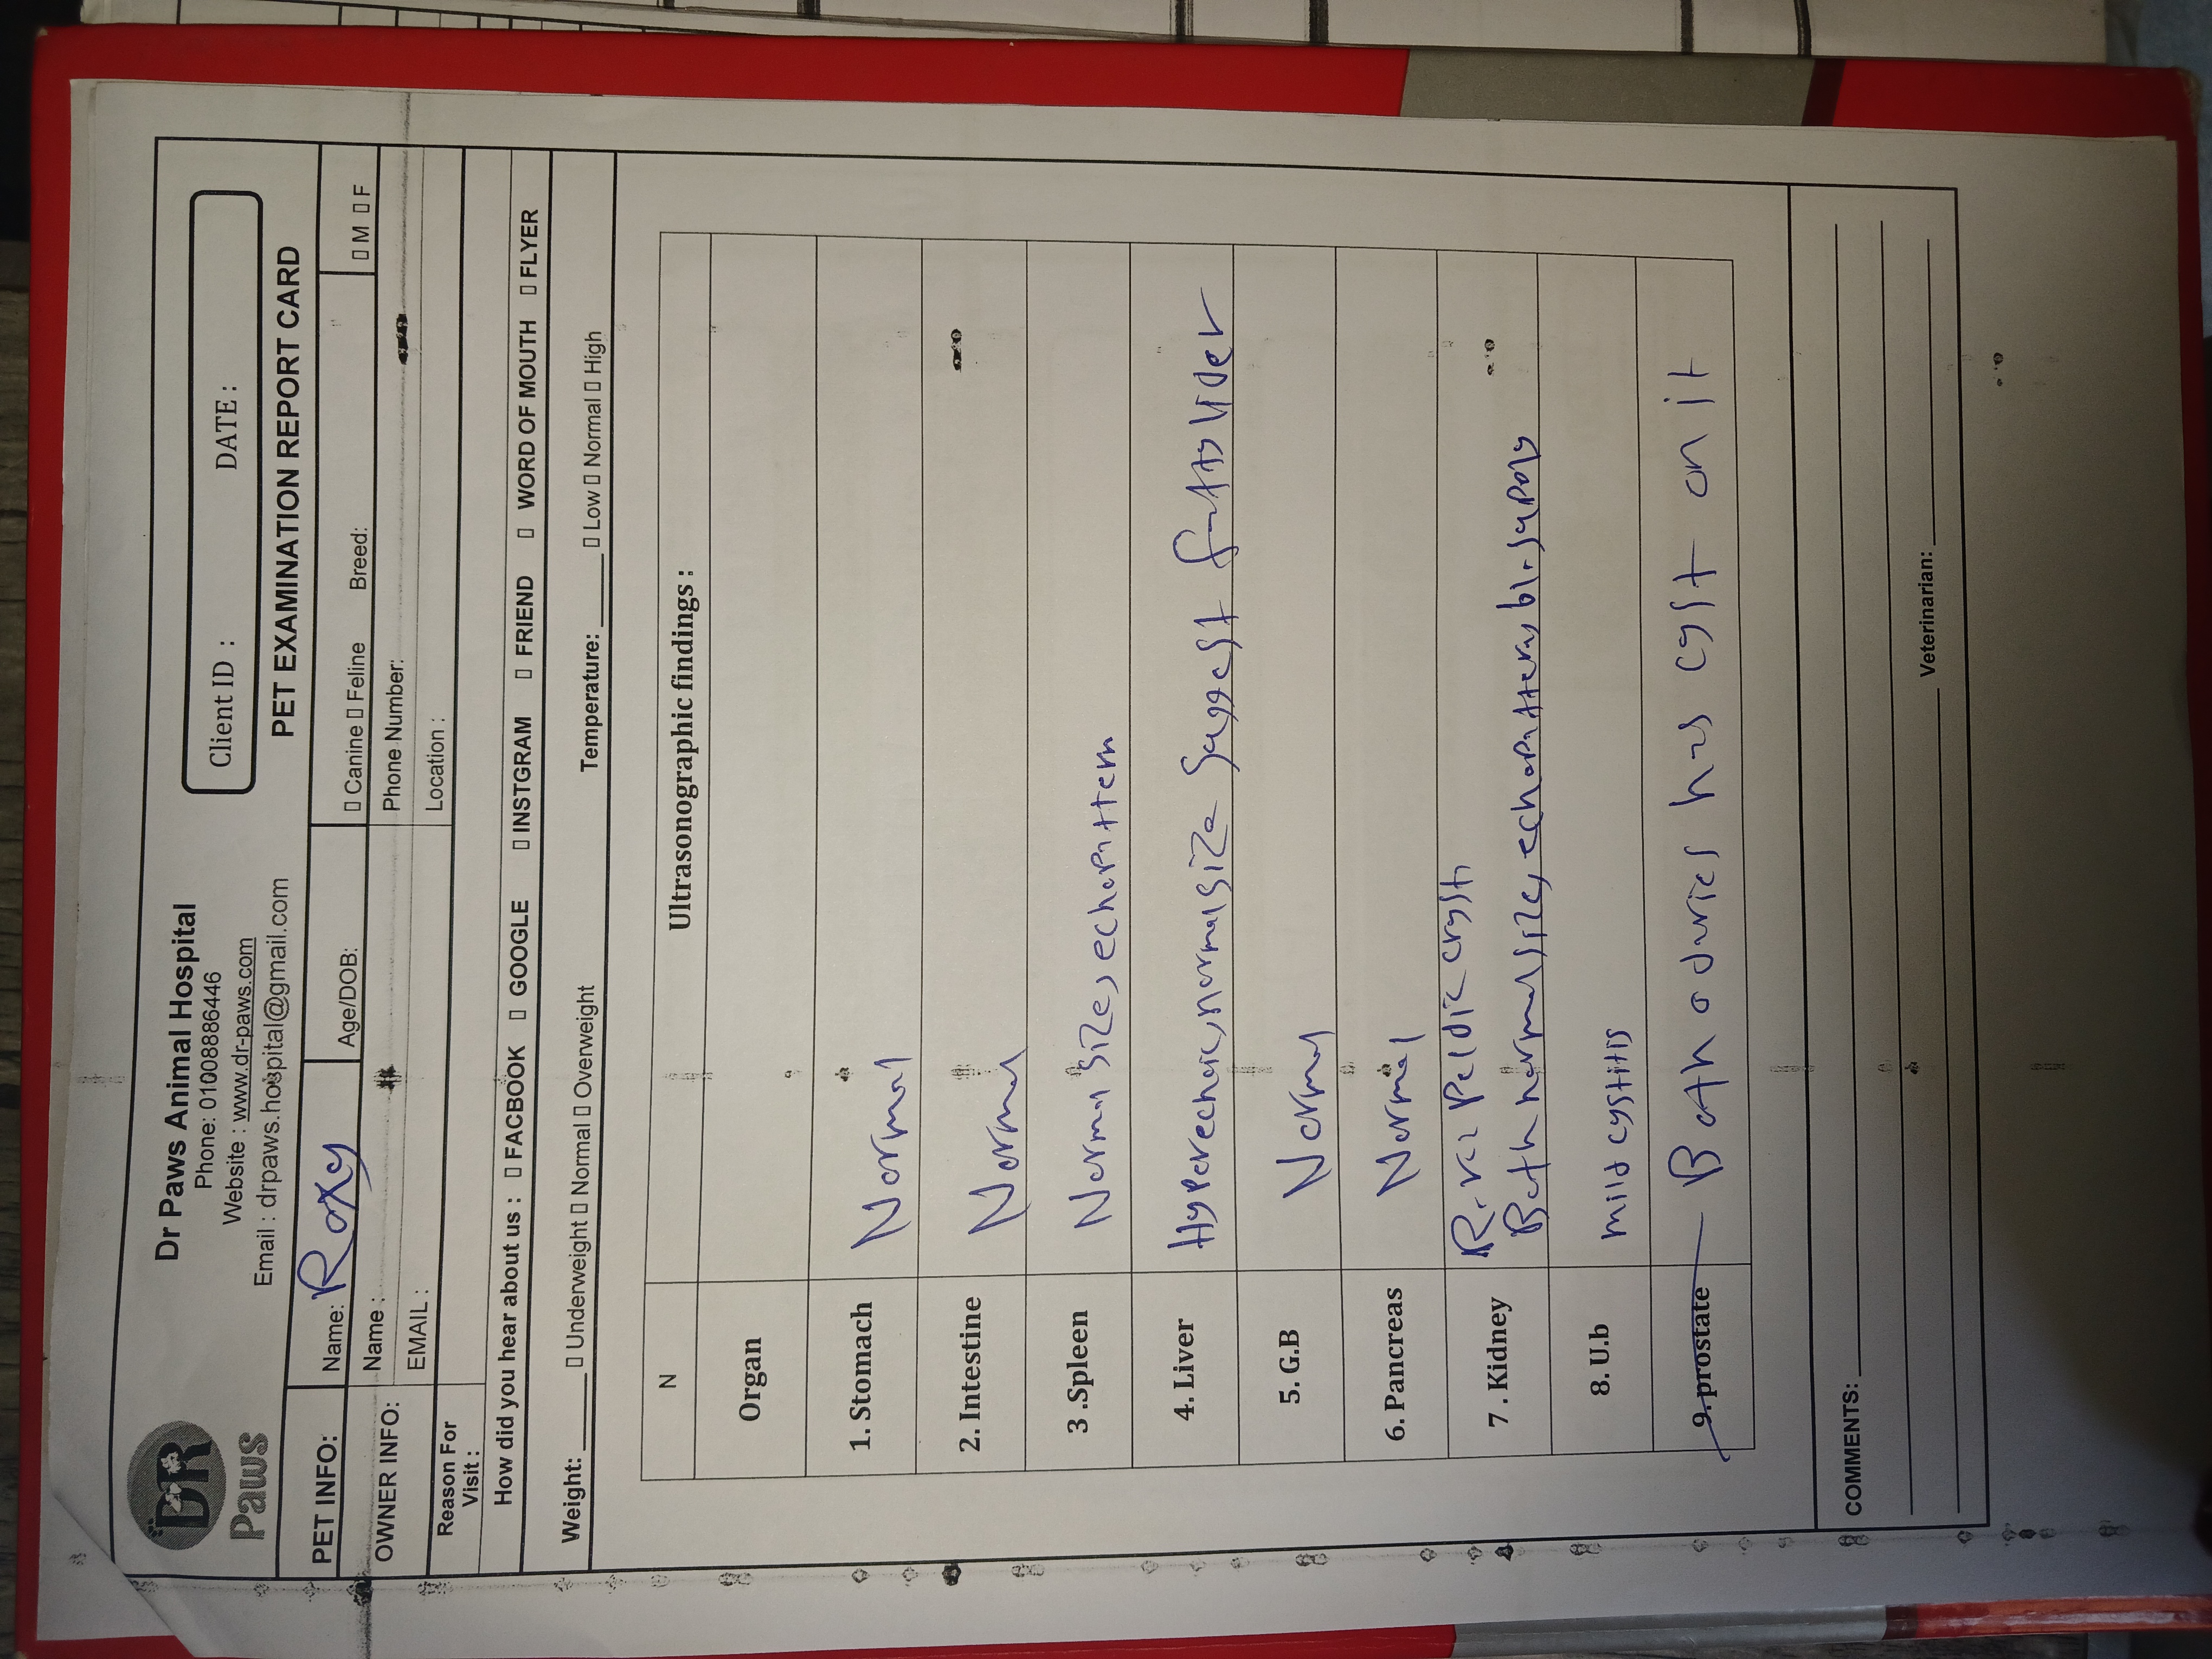 DR
Paws
Dr Paws Animal Hospital
Phone: 01008886446
Website : www.dr-paws.com
Email : drpaws.hospital@gmail.com
Client ID : DATE :
PET EXAMINATION REPORT CARD
PET INFO: Name: Roxy Age/DOB: ▯ Canine ▯ Feline Breed: ▯ M ▯ F
OWNER INFO: Name : Phone Number:
EMAIL : Location :
Reason For
Visit :
How did you hear about us : ▯ FACBOOK ▯ GOOGLE ▯ INSTGRAM ▯ FRIEND ▯ WORD OF MOUTH ▯ FLYER
Weight: ______ ▯ Underweight ▯ Normal ▯ Overweight Temperature: ______ ▯ Low ▯ Normal ▯ High
N Ultrasonographic findings :
Organ
1. Stomach Normal
2. Intestine Normal
3 .Spleen Normal size, echopattern
4. Liver Hyperechoic, normal size suggest fatty liver
5. G.B Normal
6. Pancreas Normal
7 . Kidney
Both normal size, echopattern
8. U.b mild cystitis
9. prostate Both ovaries has cyst on it
COMMENTS:
Veterinarian: